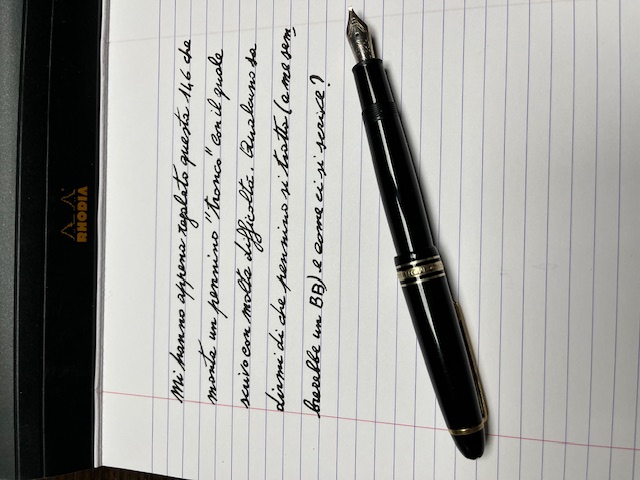 Mi hanno appena regalato questa 146 che
monta un pennino "tronco" con il quale
scrivo con molta difficoltà. Qualcuno sa
dirmi di che pennino si tratta (a me sem-
brerebbe un BB) e come ci si scrive?
RHODIA